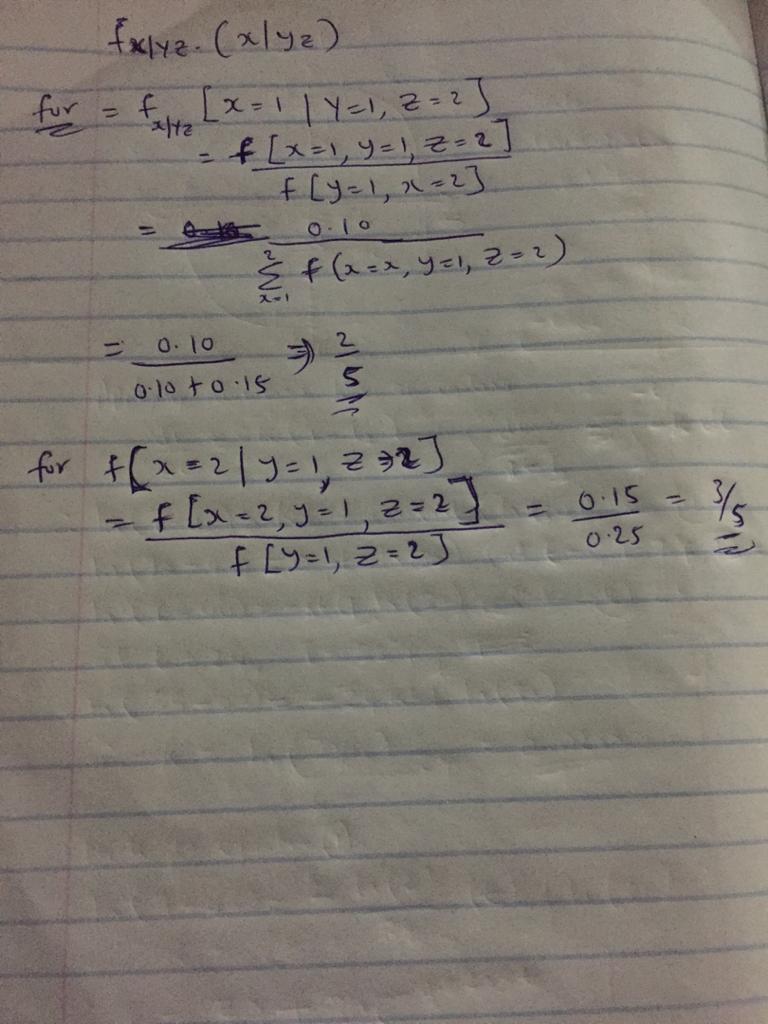 fx/yz. (x/yz)
for = f x/yz [x=1 | Y=1, Z=2]
= f [x=1, y=1, z=2]
f [y=1, x=2]
= 0.10
2 Σ x=1 f (x=x, y=1, z=2)
= 0.10 / 0.10 + 0.15 ⇒ 2/5
for f[x=2 | y=1, z=2]
= f [x=2, y=1, z=2] / f [y=1, z=2] = 0.15 / 0.25 = 3/5